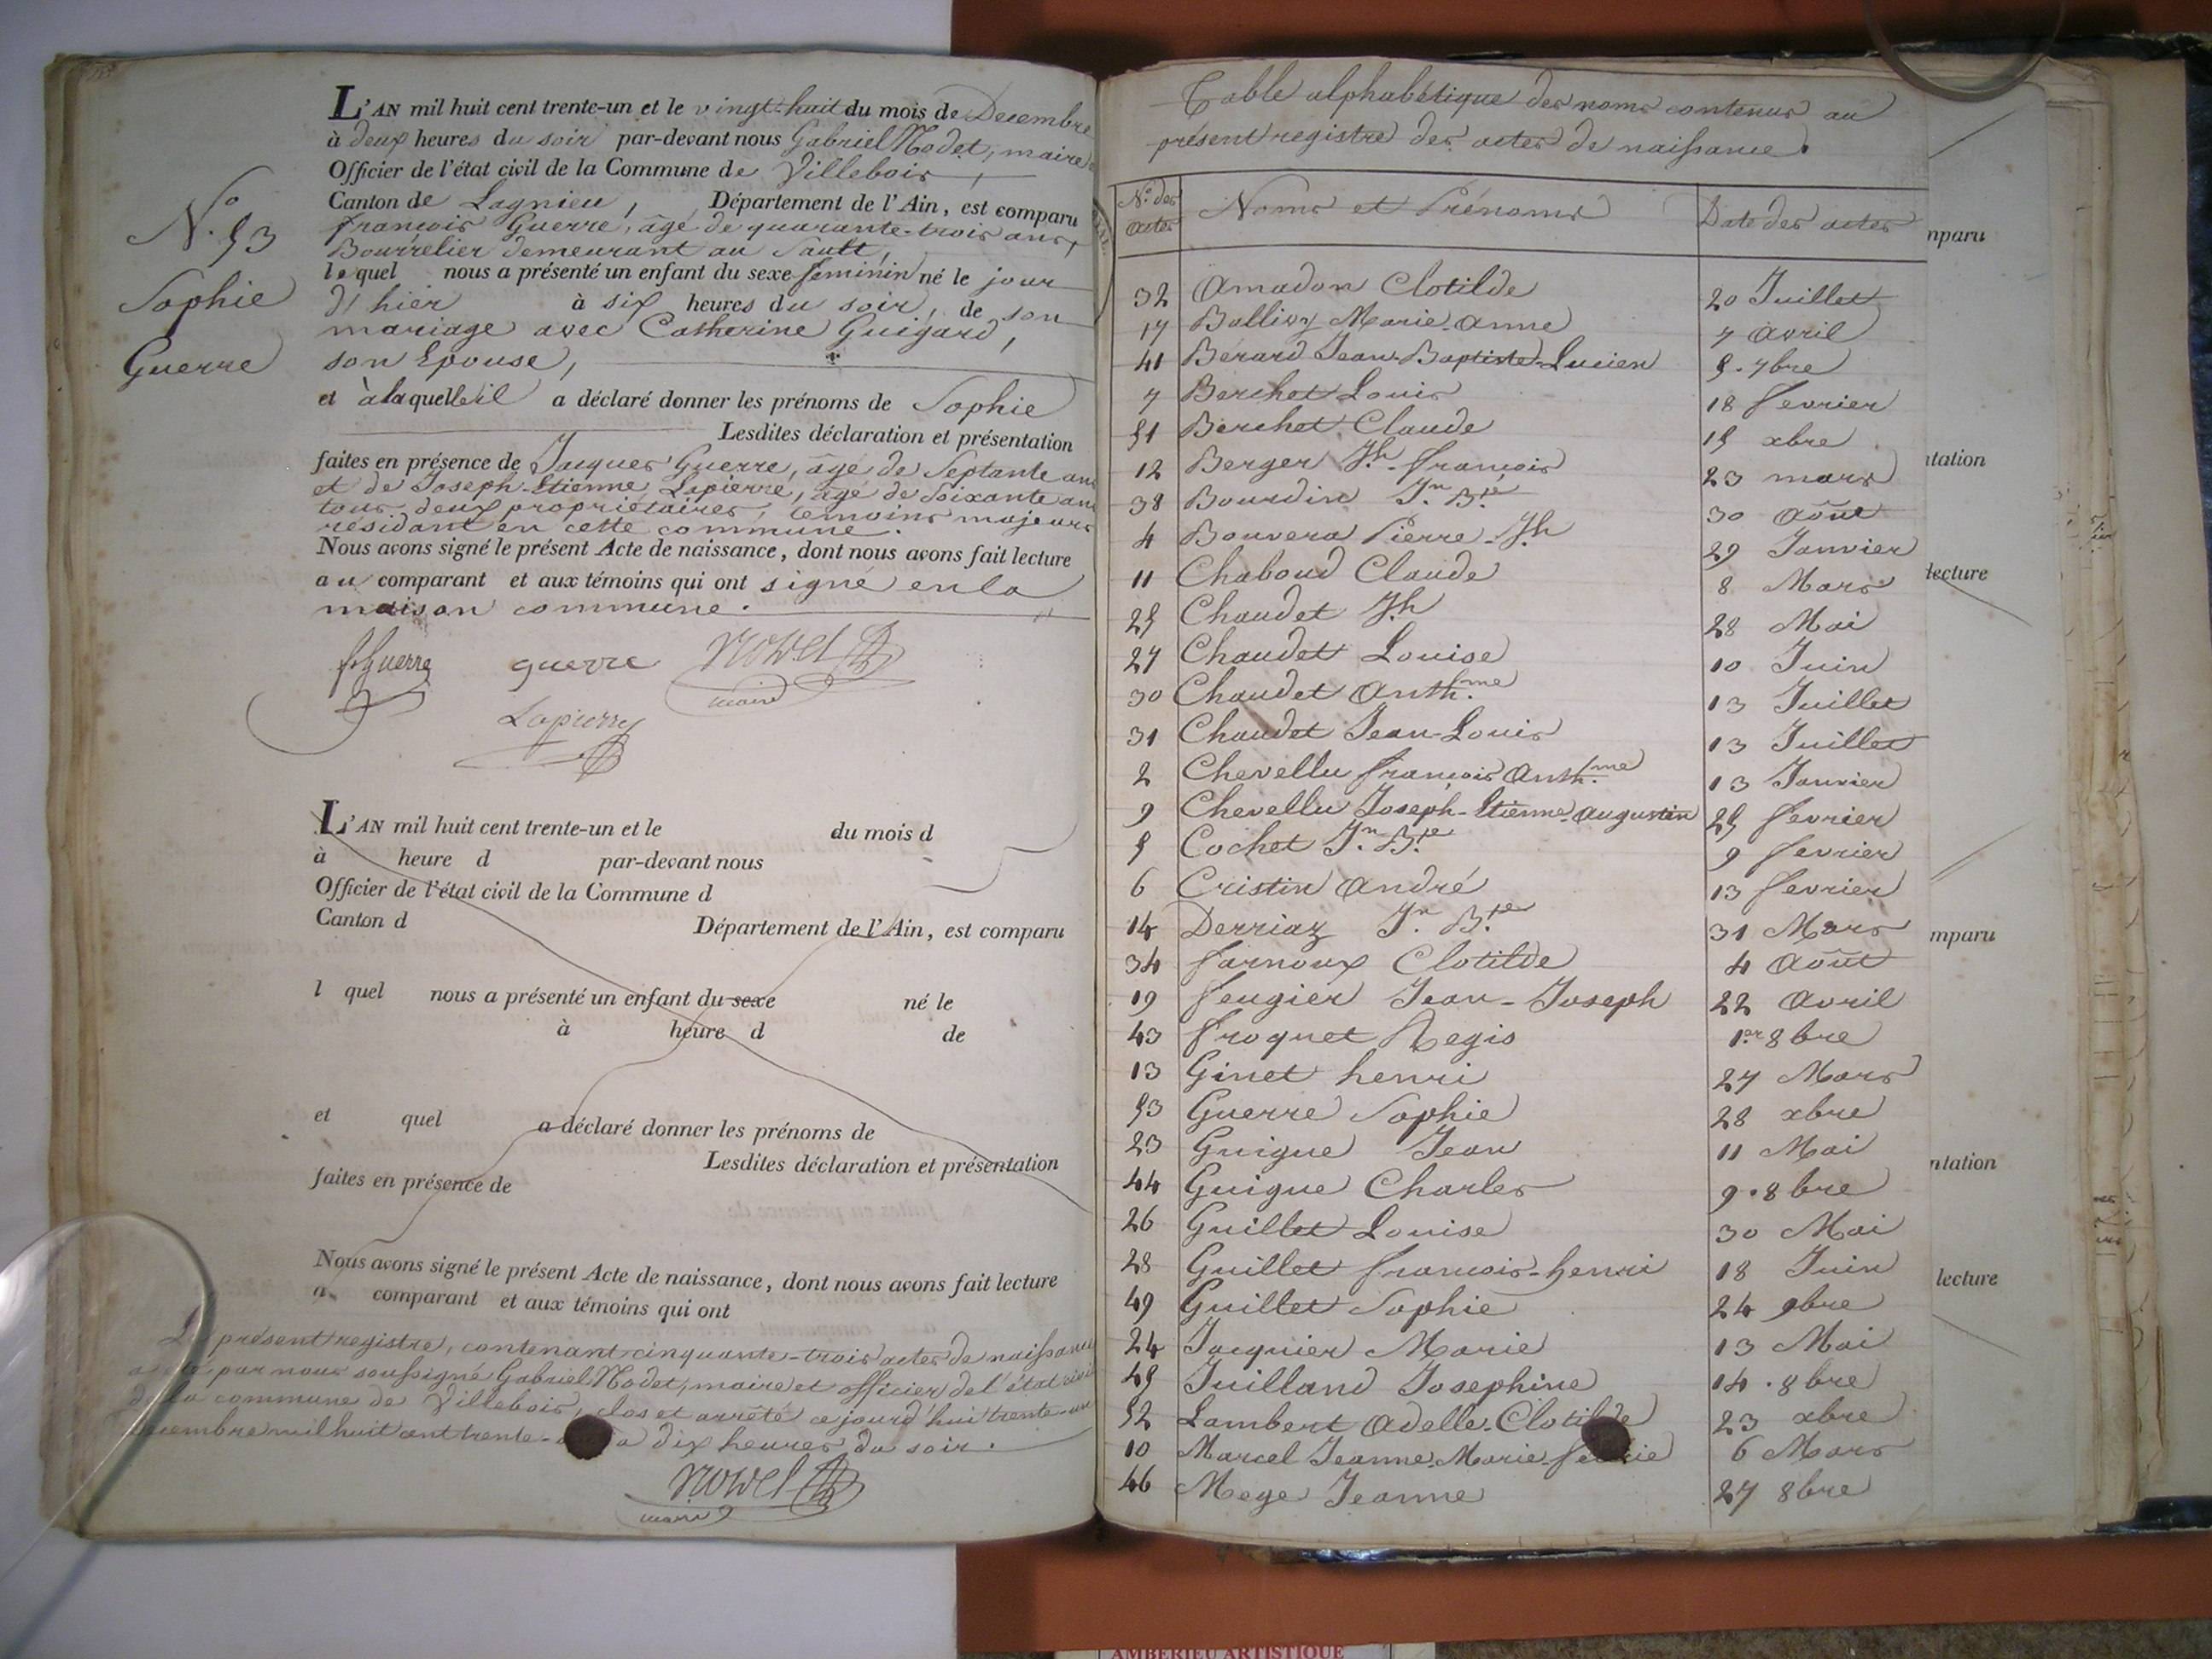 L'AN mil huit cent trente-un et le vingt-huit du mois de Decembre
à deux heures du soir par-devant nous Gabriel Nodet, maire
Officier de l'état civil de la Commune de Villebois,
Canton de Lagnieu, Département de l'Ain, est comparu
françois Guerre, âgé de quarante-trois ans,
Bourrelier demeurant au Sault,
lequel nous a présenté un enfant du sexe feminin né le jour
d'hier à six heures du soir, de son
mariage avec Catherine Guigard,
son Epouse,
et à laquelle il a déclaré donner les prénoms de Sophie
Lesdites déclaration et présentation
faites en présence de Jacques Guerre, âgé de Septante ans
et de Joseph-Etienne Lapierre, âgé de Soixante ans
tous deux propriétaires, temoins majeurs
résidant en cette commune.
Nous avons signé le présent Acte de naissance, dont nous avons fait lecture
au comparant et aux témoins qui ont signé en la
maison commune.
N.° 53
Sophie
Guerre
f. Guerre guerre Nodet
maire
Lapierre
L'AN mil huit cent trente-un et le du mois d
à heure d par-devant nous
Officier de l'état civil de la Commune d
Canton d Département de l'Ain, est comparu
l quel nous a présenté un enfant du sexe né le
à heure d de
et quel a déclaré donner les prénoms de
Lesdites déclaration et présentation
faites en présence de
Nous avons signé le présent Acte de naissance, dont nous avons fait lecture
a comparant et aux témoins qui ont
Le présent registre, contenant cinquante-trois actes de naissance
a été par nous soussigné Gabriel Nodet, maire et officier de l'état civil
de la commune de Villebois, clos et arrêté ce jourd'hui trente-un
decembre mil huit cent trente- a dix heures du soir.
Nodet
maire
Table alphabétique des noms contenus au
présent registre des actes de naissance.
N.° des actes Noms et Prénoms Date des actes
32 Amadon Clotilde 20 Juillet
17 Ballivy Marie-Anne 7 Avril
41 Bérard Jean-Baptiste-Lucien 5. 7bre
7 Berchet Louis 18 fevrier
51 Berchet Claude 15 xbre
12 Berger Jh. françois 23 mars
38 Bourdin Jn. Bte 30 Août
4 Bouvera Pierre-Jh 29 Janvier
11 Chaboud Claude 8 Mars
25 Chaudet Jh 28 Mai
27 Chaudet Louise 10 Juin
30 Chaudet Anth.me 13 Juillet
31 Chaudet Jean-Louis 13 Juillet
2 Chevellu françois Anth.me 13 Janvier
9 Chevellu Joseph-Etienne-Augustin 25 fevrier
5 Cochet Jn. Bte 9 fevrier
6 Cristin André 13 fevrier
14 Derriaz Jn. Bte 31 Mars
34 farnoux Clotilde 4 Août
19 feugier Jean-Joseph 22 Avril
43 froquet Regis 1er 8bre
13 Ginet henri 27 Mars
53 Guerre Sophie 28 xbre
23 Guigue Jean 11 Mai
44 Guigue Charles 9. 8bre
26 Guillet Louise 30 Mai
28 Guillet françois-henri 18 Juin
49 Guillet Sophie 24 9bre
24 Jacquier Marie 13 Mai
45 Juilland Josephine 14. 8bre
52 Lambert Adelle-Clotilde 23 xbre
10 Marcel Jeanne-Marie 6 Mars
46 Mege Jeanne 27 8bre
nparu
ntation
lecture
mparu
ntation
lecture
AMBERIEU ARTISTIQUE